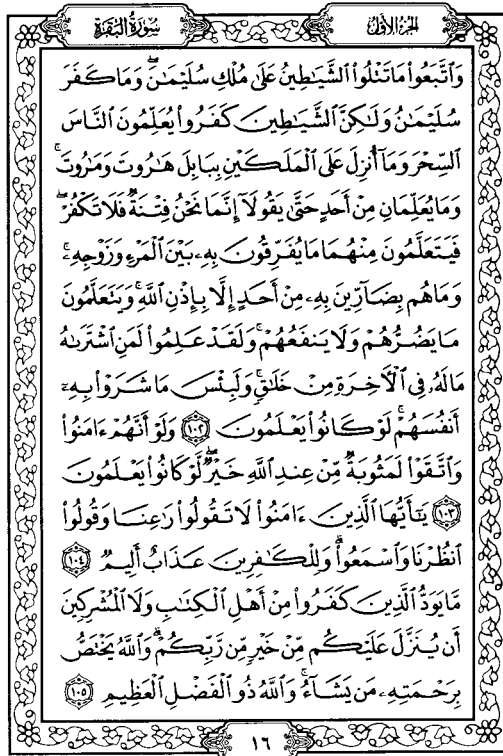 الجزء الأول
سورة البقرة
وَٱتَّبَعُوا۟ مَا تَتْلُوا۟ ٱلشَّيَٰطِينُ عَلَىٰ مُلْكِ سُلَيْمَٰنَ ۖ وَمَا كَفَرَ
سُلَيْمَٰنُ وَلَٰكِنَّ ٱلشَّيَٰطِينَ كَفَرُوا۟ يُعَلِّمُونَ ٱلنَّاسَ
ٱلسِّحْرَ وَمَآ أُنزِلَ عَلَى ٱلْمَلَكَيْنِ بِبَابِلَ هَٰرُوتَ وَمَٰرُوتَ ۚ
وَمَا يُعَلِّمَانِ مِنْ أَحَدٍ حَتَّىٰ يَقُولَآ إِنَّمَا نَحْنُ فِتْنَةٌ فَلَا تَكْفُرْ ۖ
فَيَتَعَلَّمُونَ مِنْهُمَا مَا يُفَرِّقُونَ بِهِۦ بَيْنَ ٱلْمَرْءِ وَزَوْجِهِۦ ۚ
وَمَا هُم بِضَآرِّينَ بِهِۦ مِنْ أَحَدٍ إِلَّا بِإِذْنِ ٱللَّهِ ۚ وَيَتَعَلَّمُونَ
مَا يَضُرُّهُمْ وَلَا يَنفَعُهُمْ ۚ وَلَقَدْ عَلِمُوا۟ لَمَنِ ٱشْتَرَىٰهُ
مَا لَهُۥ فِى ٱلْءَاخِرَةِ مِنْ خَلَٰقٍ ۚ وَلَبِئْسَ مَا شَرَوْا۟ بِهِۦٓ
أَنفُسَهُمْ ۚ لَوْ كَانُوا۟ يَعْلَمُونَ ١٠٢ وَلَوْ أَنَّهُمْ ءَامَنُوا۟
وَٱتَّقَوْا۟ لَمَثُوبَةٌ مِّنْ عِندِ ٱللَّهِ خَيْرٌ ۖ لَّوْ كَانُوا۟ يَعْلَمُونَ
١٠٣ يَٰٓأَيُّهَا ٱلَّذِينَ ءَامَنُوا۟ لَا تَقُولُوا۟ رَٰعِنَا وَقُولُوا۟
ٱنظُرْنَا وَٱسْمَعُوا۟ ۗ وَلِلْكَٰفِرِينَ عَذَابٌ أَلِيمٌ ١٠٤
مَّا يَوَدُّ ٱلَّذِينَ كَفَرُوا۟ مِنْ أَهْلِ ٱلْكِتَٰبِ وَلَا ٱلْمُشْرِكِينَ
أَن يُنَزَّلَ عَلَيْكُم مِّنْ خَيْرٍ مِّن رَّبِّكُمْ ۗ وَٱللَّهُ يَخْتَصُّ
بِرَحْمَتِهِۦ مَن يَشَآءُ ۚ وَٱللَّهُ ذُو ٱلْفَضْلِ ٱلْعَظِيمِ ١٠٥
١٦